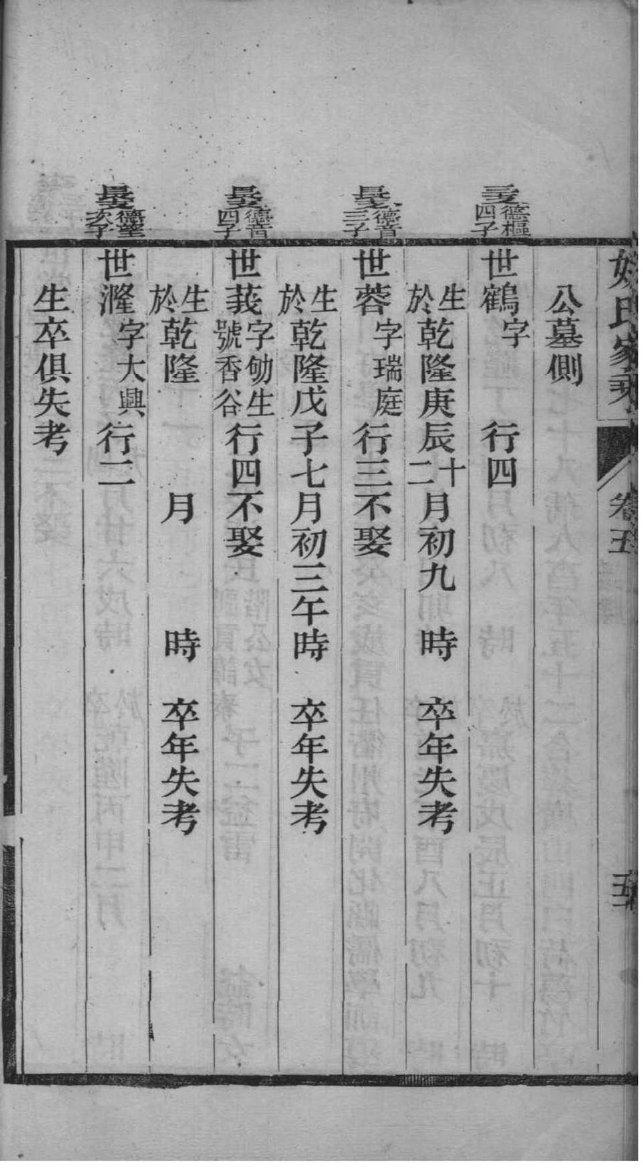 姚氏家乘 卷五
公墓側
德樞四子
世鶴字 行四
生於乾隆庚辰十二月初九 時 卒年失考
德音三子
世蓉字瑞庭行三不娶
生於乾隆戊子七月初三午時 卒年失考
德音四子
世莪字劬生號香谷行四不娶
生於乾隆 月 時 卒年失考
次子
世漋字大興行二
生卒俱失考